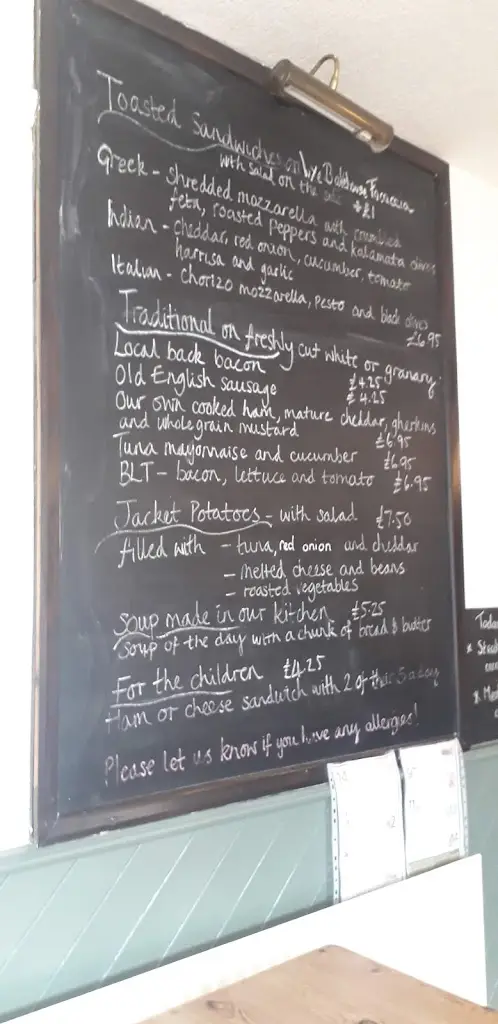 Toasted Sandwiches on Wye Bakehouse Focaccia
with salad on the side +£1
Greek - shredded mozzarella with crumbled
feta, roasted peppers and kalamata olives
Indian - cheddar, red onion, cucumber, tomato
harrisa and garlic
Italian - chorizo mozzarella, pesto and black olives
£6.95
Traditional on freshly cut white or granary
Local back bacon £4.25
Old English sausage £4.25
Our own cooked ham, mature cheddar, gherkins
and wholegrain mustard £6.95
Tuna mayonnaise and cucumber £6.95
BLT - bacon, lettuce and tomato £6.95
Jacket Potatoes - with salad £7.50
filled with - tuna, red onion and cheddar
- melted cheese and beans
- roasted vegetables
Soup made in our kitchen £5.25
Soup of the day with a chunk of bread & butter
For the children £4.25
Ham or cheese sandwich with 2 of their 5 a day
Please let us know if you have any allergies!